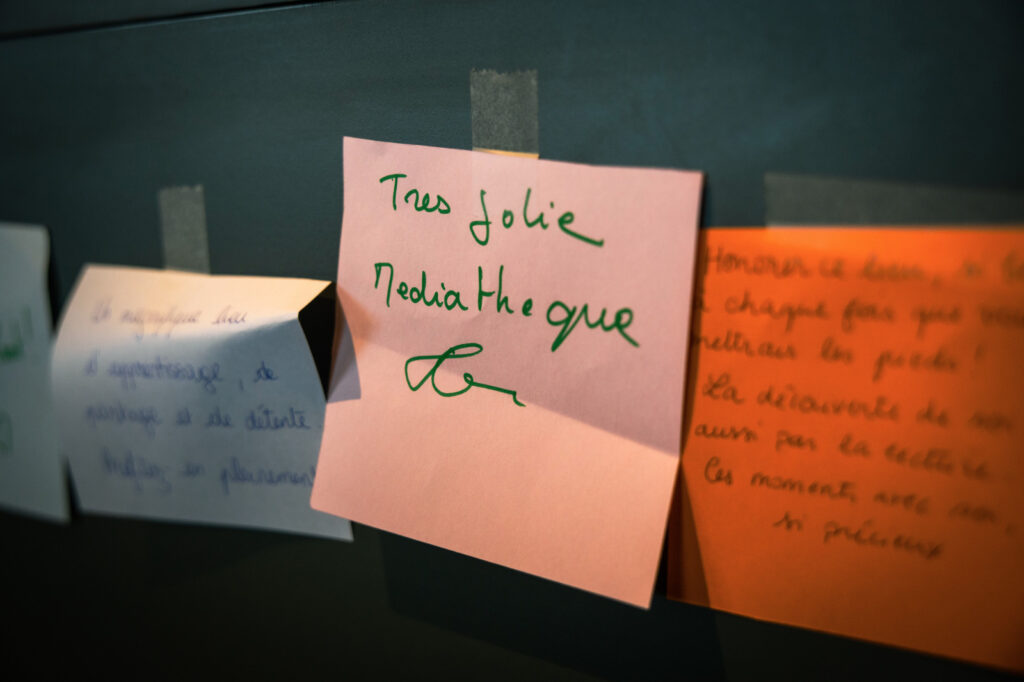 Tres Jolie
Mediatheque
magnifique lieu
d'apprentissage, de
partage et de détente.
en pleinement
Honorer ce lieu, si
à chaque fois que vous
mettrais les pieds !
La découverte de soi
aussi par la lecture.
Ces moments avec soi,
si précieux